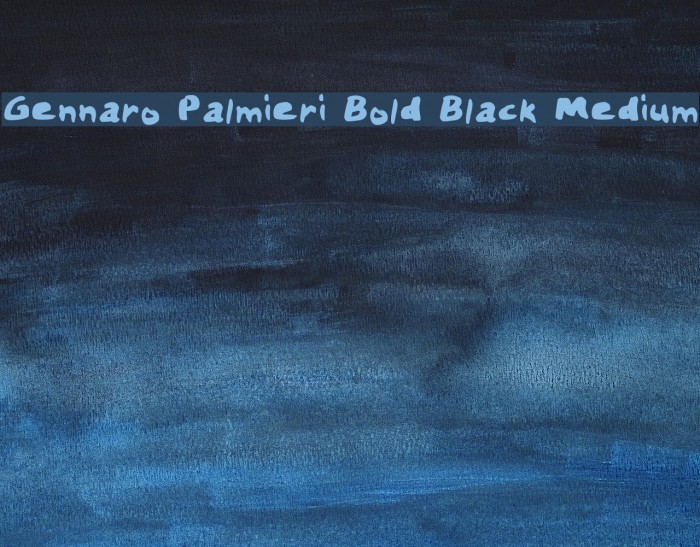 Gennaro Palmieri Bold Black Medium